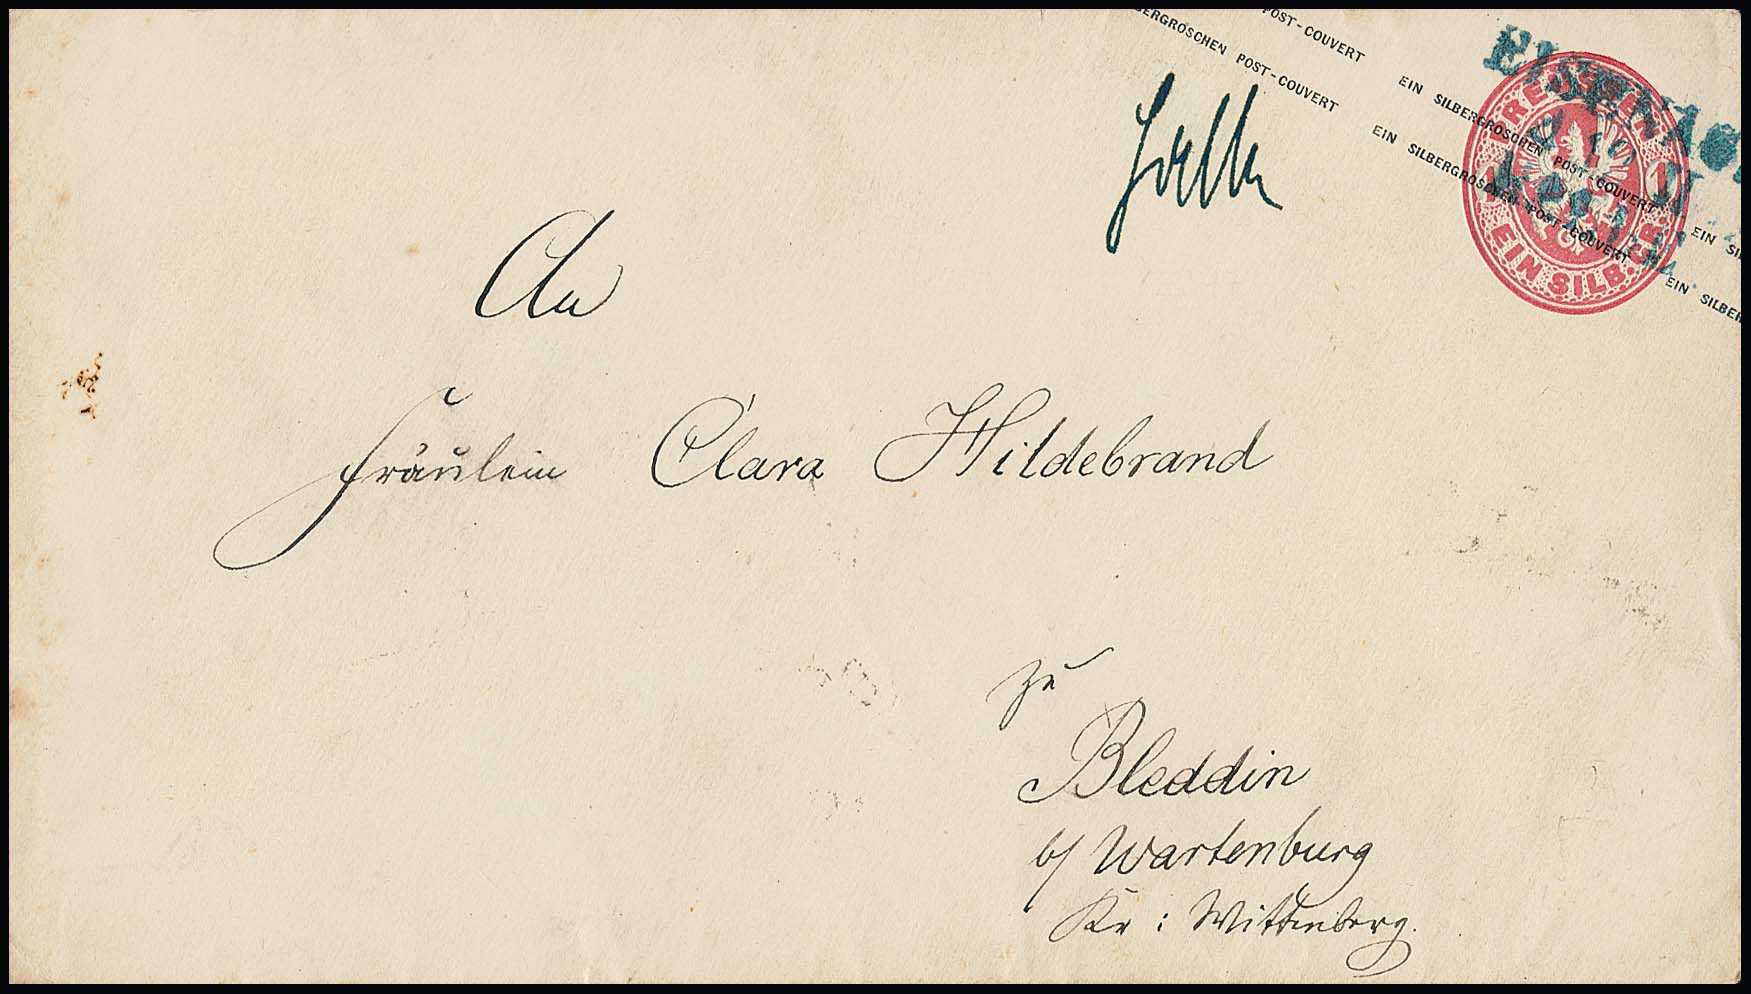 POST-COUVERT EIN SILBERGROSCHEN POST-COUVERT EIN
SILBERGROSCHEN POST-COUVERT EIN SILBERGROSCHEN POST-COUVERT EIN SILBER
PREUSSEN
1 1
EIN SILB. GR.
An
Fräulein Clara Hildebrand
zu
Bleddin
b/ Wartenburg
Kr: Wittenberg.